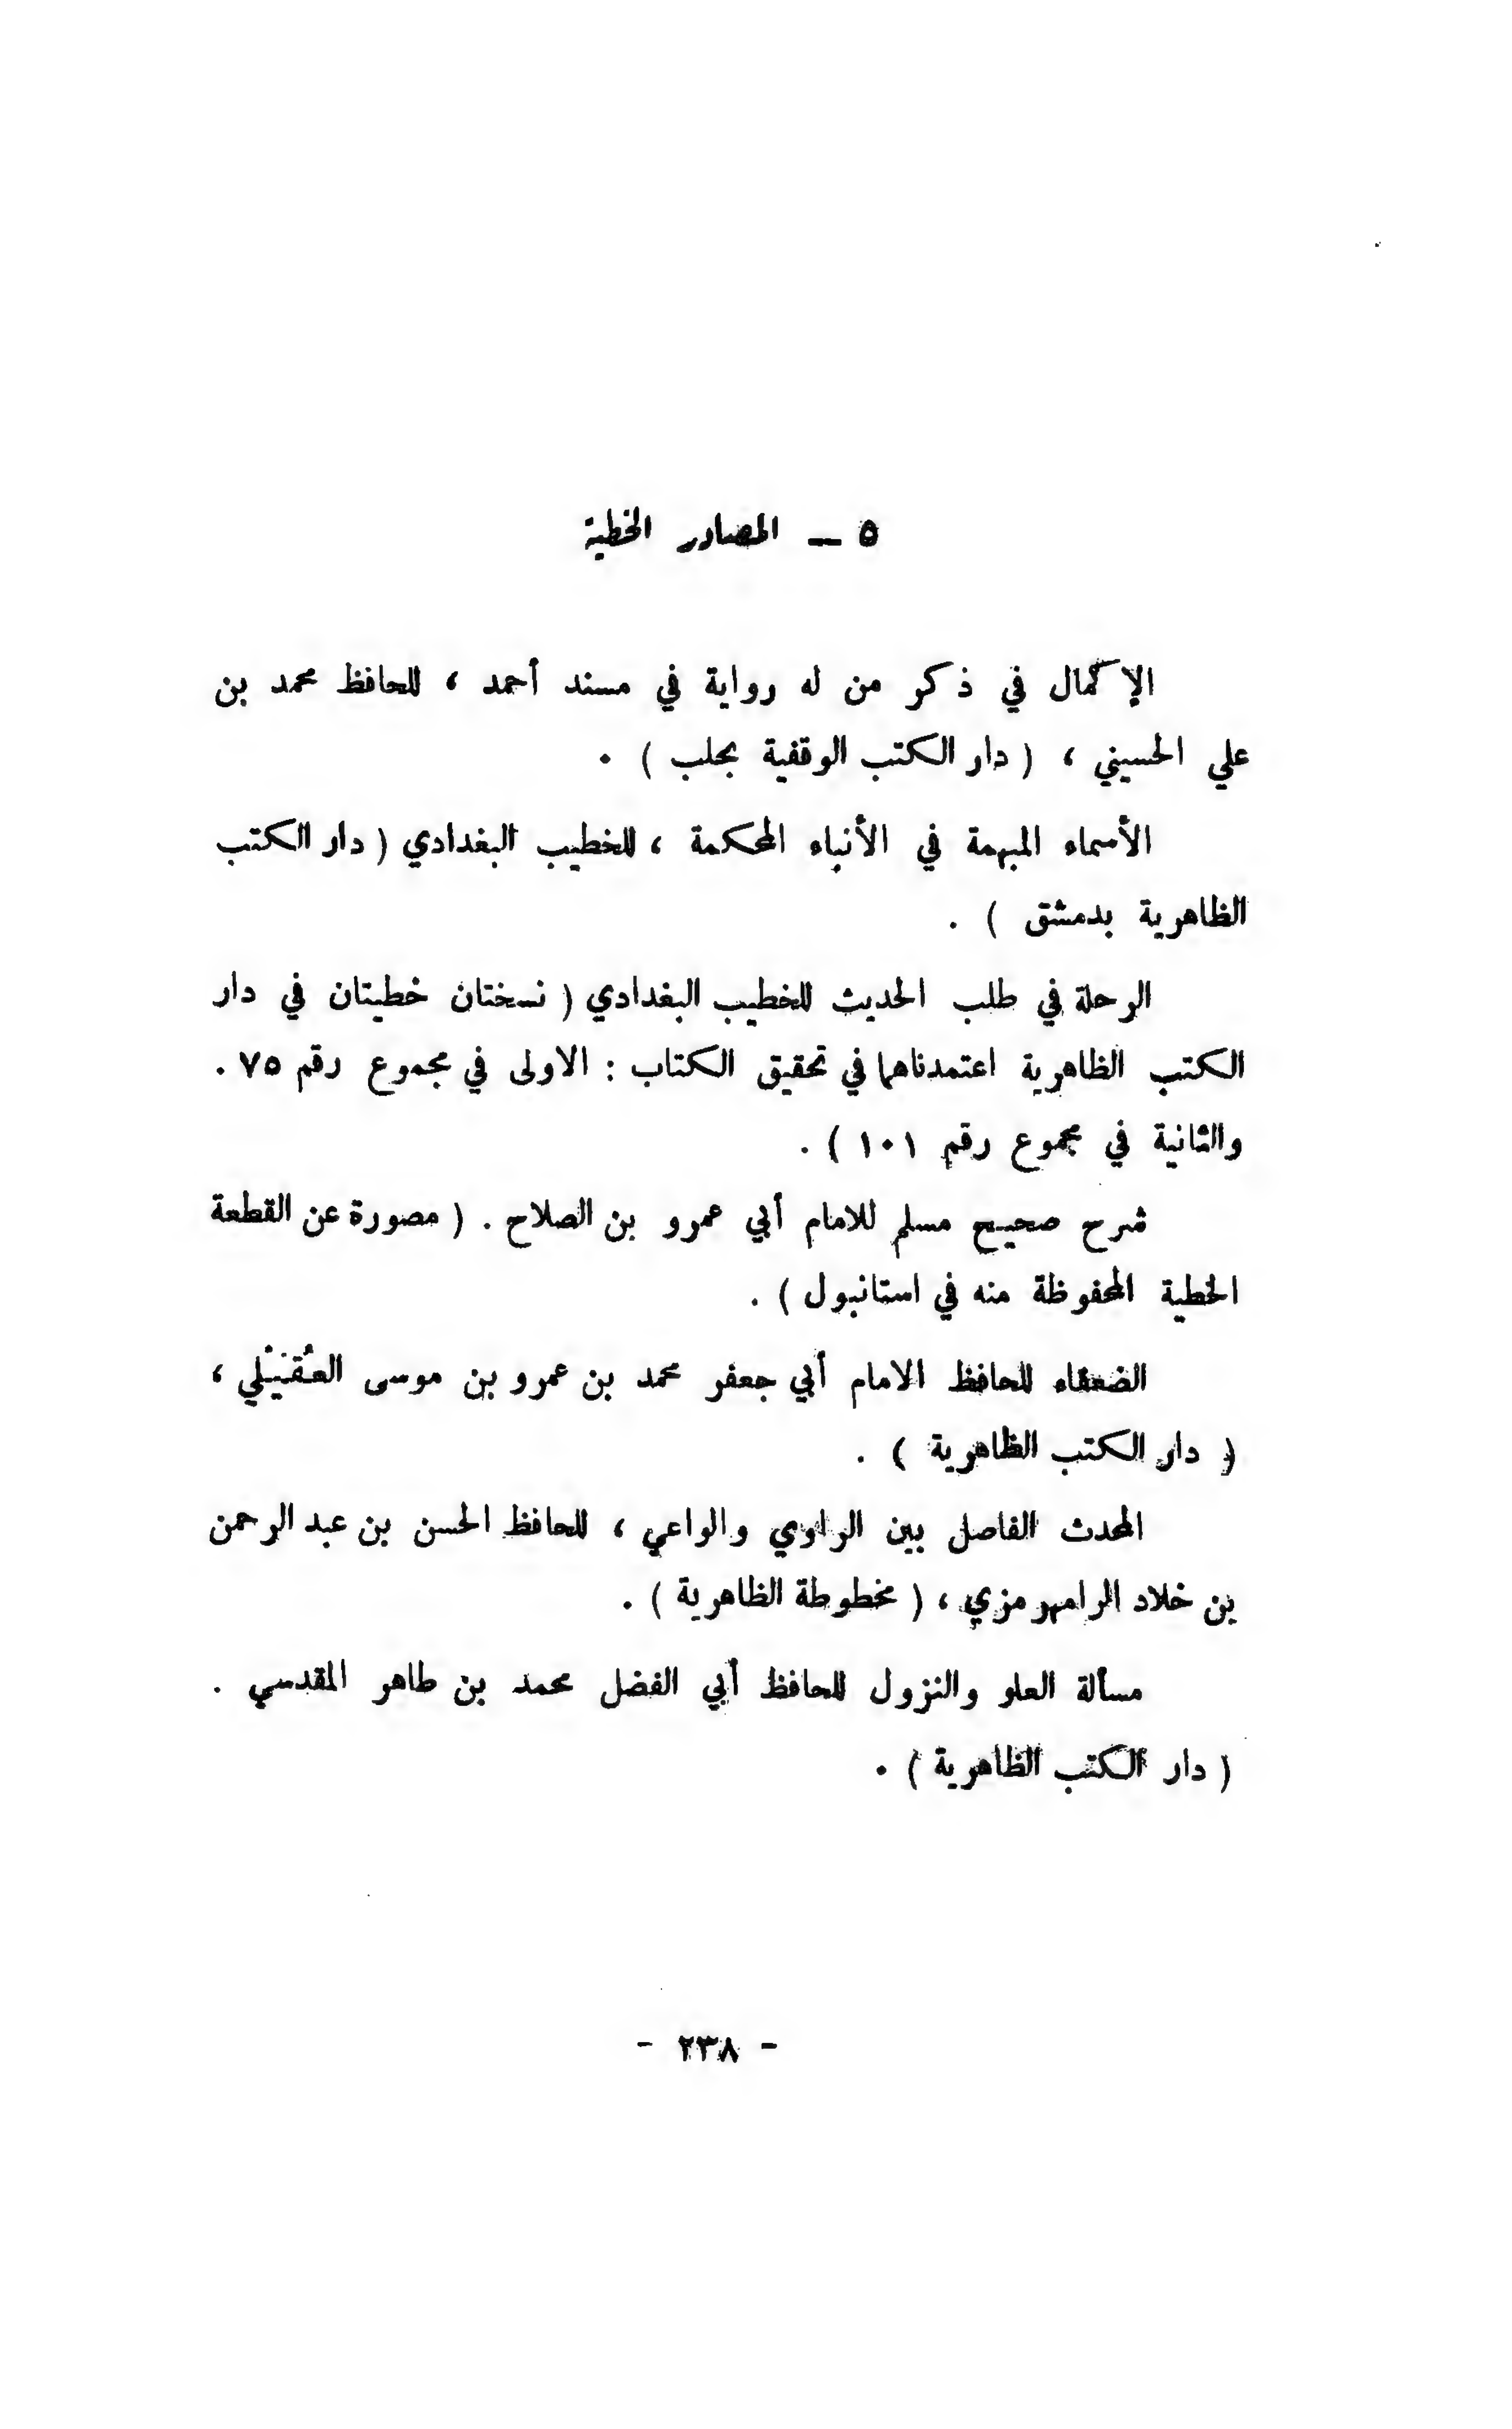 ٥ ـ المصادر الخطية
الإكمال في ذكر من له رواية في مسند أحمد ، للحافظ محمد بن
علي الحسيني ، ( دار الكتب الوقفية بحلب ) .
الأسماء المبهمة في الأنباء المحكمة ، للخطيب البغدادي ( دار الكتب
الظاهرية بدمشق ) .
الرحلة في طلب الحديث للخطيب البغدادي ( نسختان خطيتان في دار
الكتب الظاهرية اعتمدناهما في تحقيق الكتاب : الاولى في مجموع رقم ٧٥ .
والثانية في مجموع رقم ١٠١ ) .
شرح صحيح مسلم للامام أبي عمرو بن الصلاح . ( مصورة عن القطعة
الخطية المحفوظة منه في استانبول ) .
الضعفاء للحافظ الامام أبي جعفر محمد بن عمرو بن موسى العُقَيْلي ،
( دار الكتب الظاهرية ) .
المحدث الفاصل بين الراوي والواعي ، للحافظ الحسن بن عبد الرحمن
بن خلاد الرامهرمزي ، ( مخطوطة الظاهرية ) .
مسألة العلو والنزول للحافظ أبي الفضل محمد بن طاهر المقدسي .
( دار الكتب الظاهرية ) .
- ٢٣٨ -